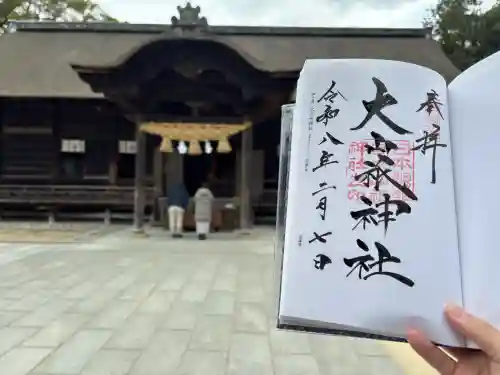 奉拝
大山祇神社
令和八年二月七日